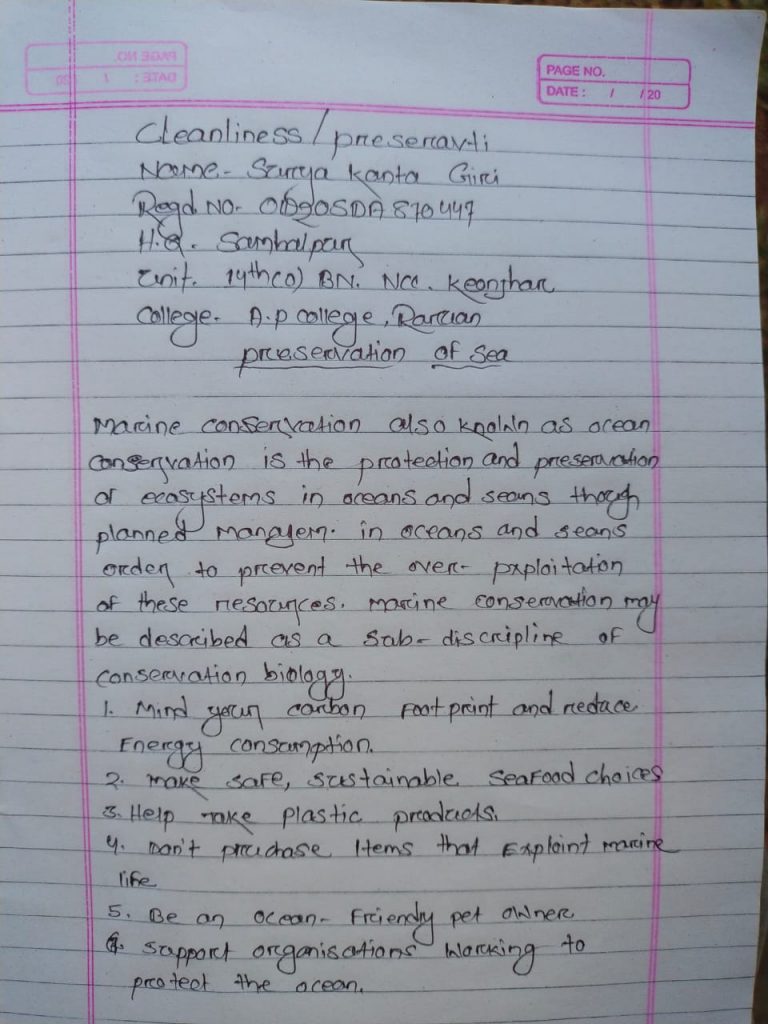 PAGE NO.
DATE : / / 20
Cleanliness/preseravti
Name- Surya Kanta Giri
Regd No- OD20SDA870447
H.Q. Sambalpur
Unit. 14th(O) BN. NCC. Keonjhar
College. A.p college, Raruan
preservation of sea
Marine conservation also known as ocean
conservation is the protection and preservation
of ecosystems in oceans and seans though
planned managem. in oceans and seans
order to prevent the over- pxploitation
of these resources. Marine conservation may
be described as a sub-discripline of
conservation biology.
1. Mind your carbon Footprint and reduce
Energy consumption.
2. make safe, sustainable seafood choices
3. Help take plastic products.
4. Don't pruchase Items that Exploint marine
life
5. Be an ocean-Friendly pet owner
6. support organisations working to
protect the ocean.